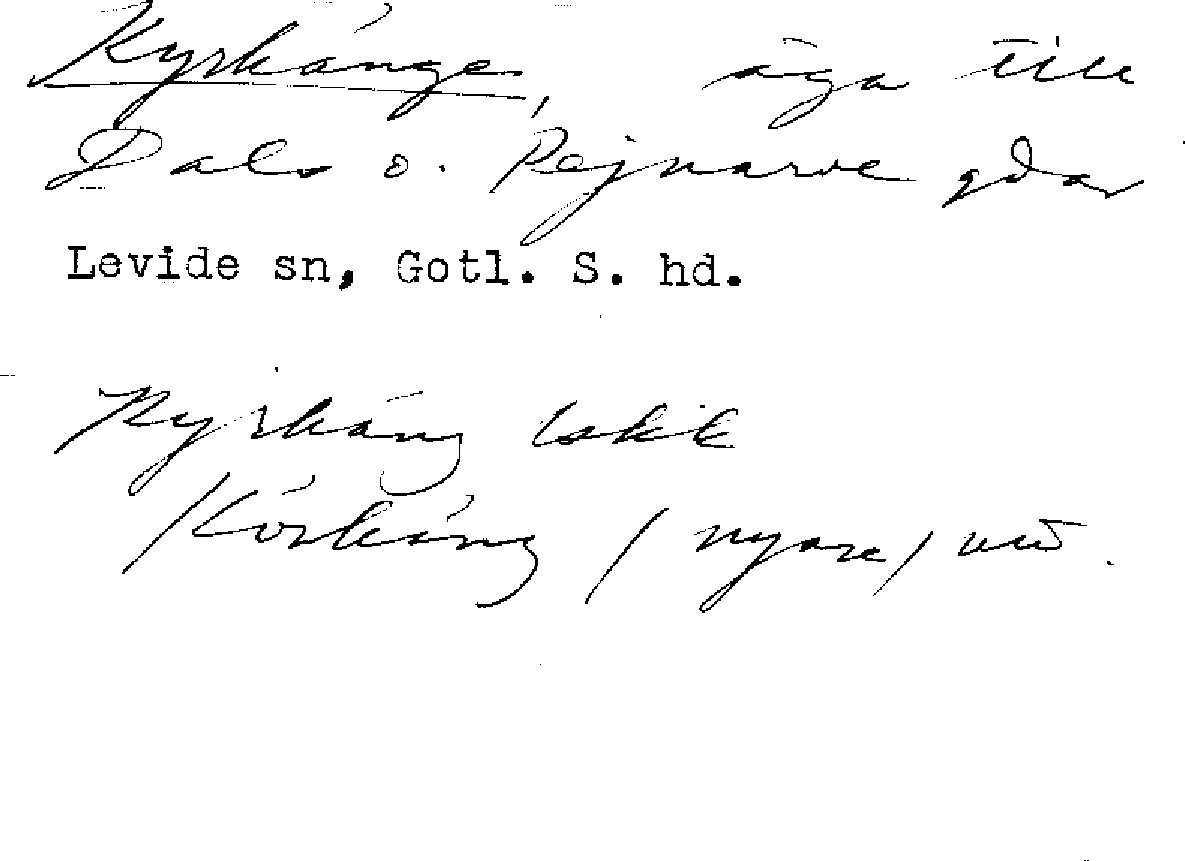 Kyrkänge, äga till
Dals o. Pejnarve gdar
Levide sn, Gotl. S. hd.
Kyrkäng
/Körkäng / nyare /